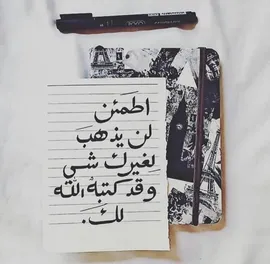 اطمئن
لن يذهب
لغيرك شي
وقد كتبه الله
لك.